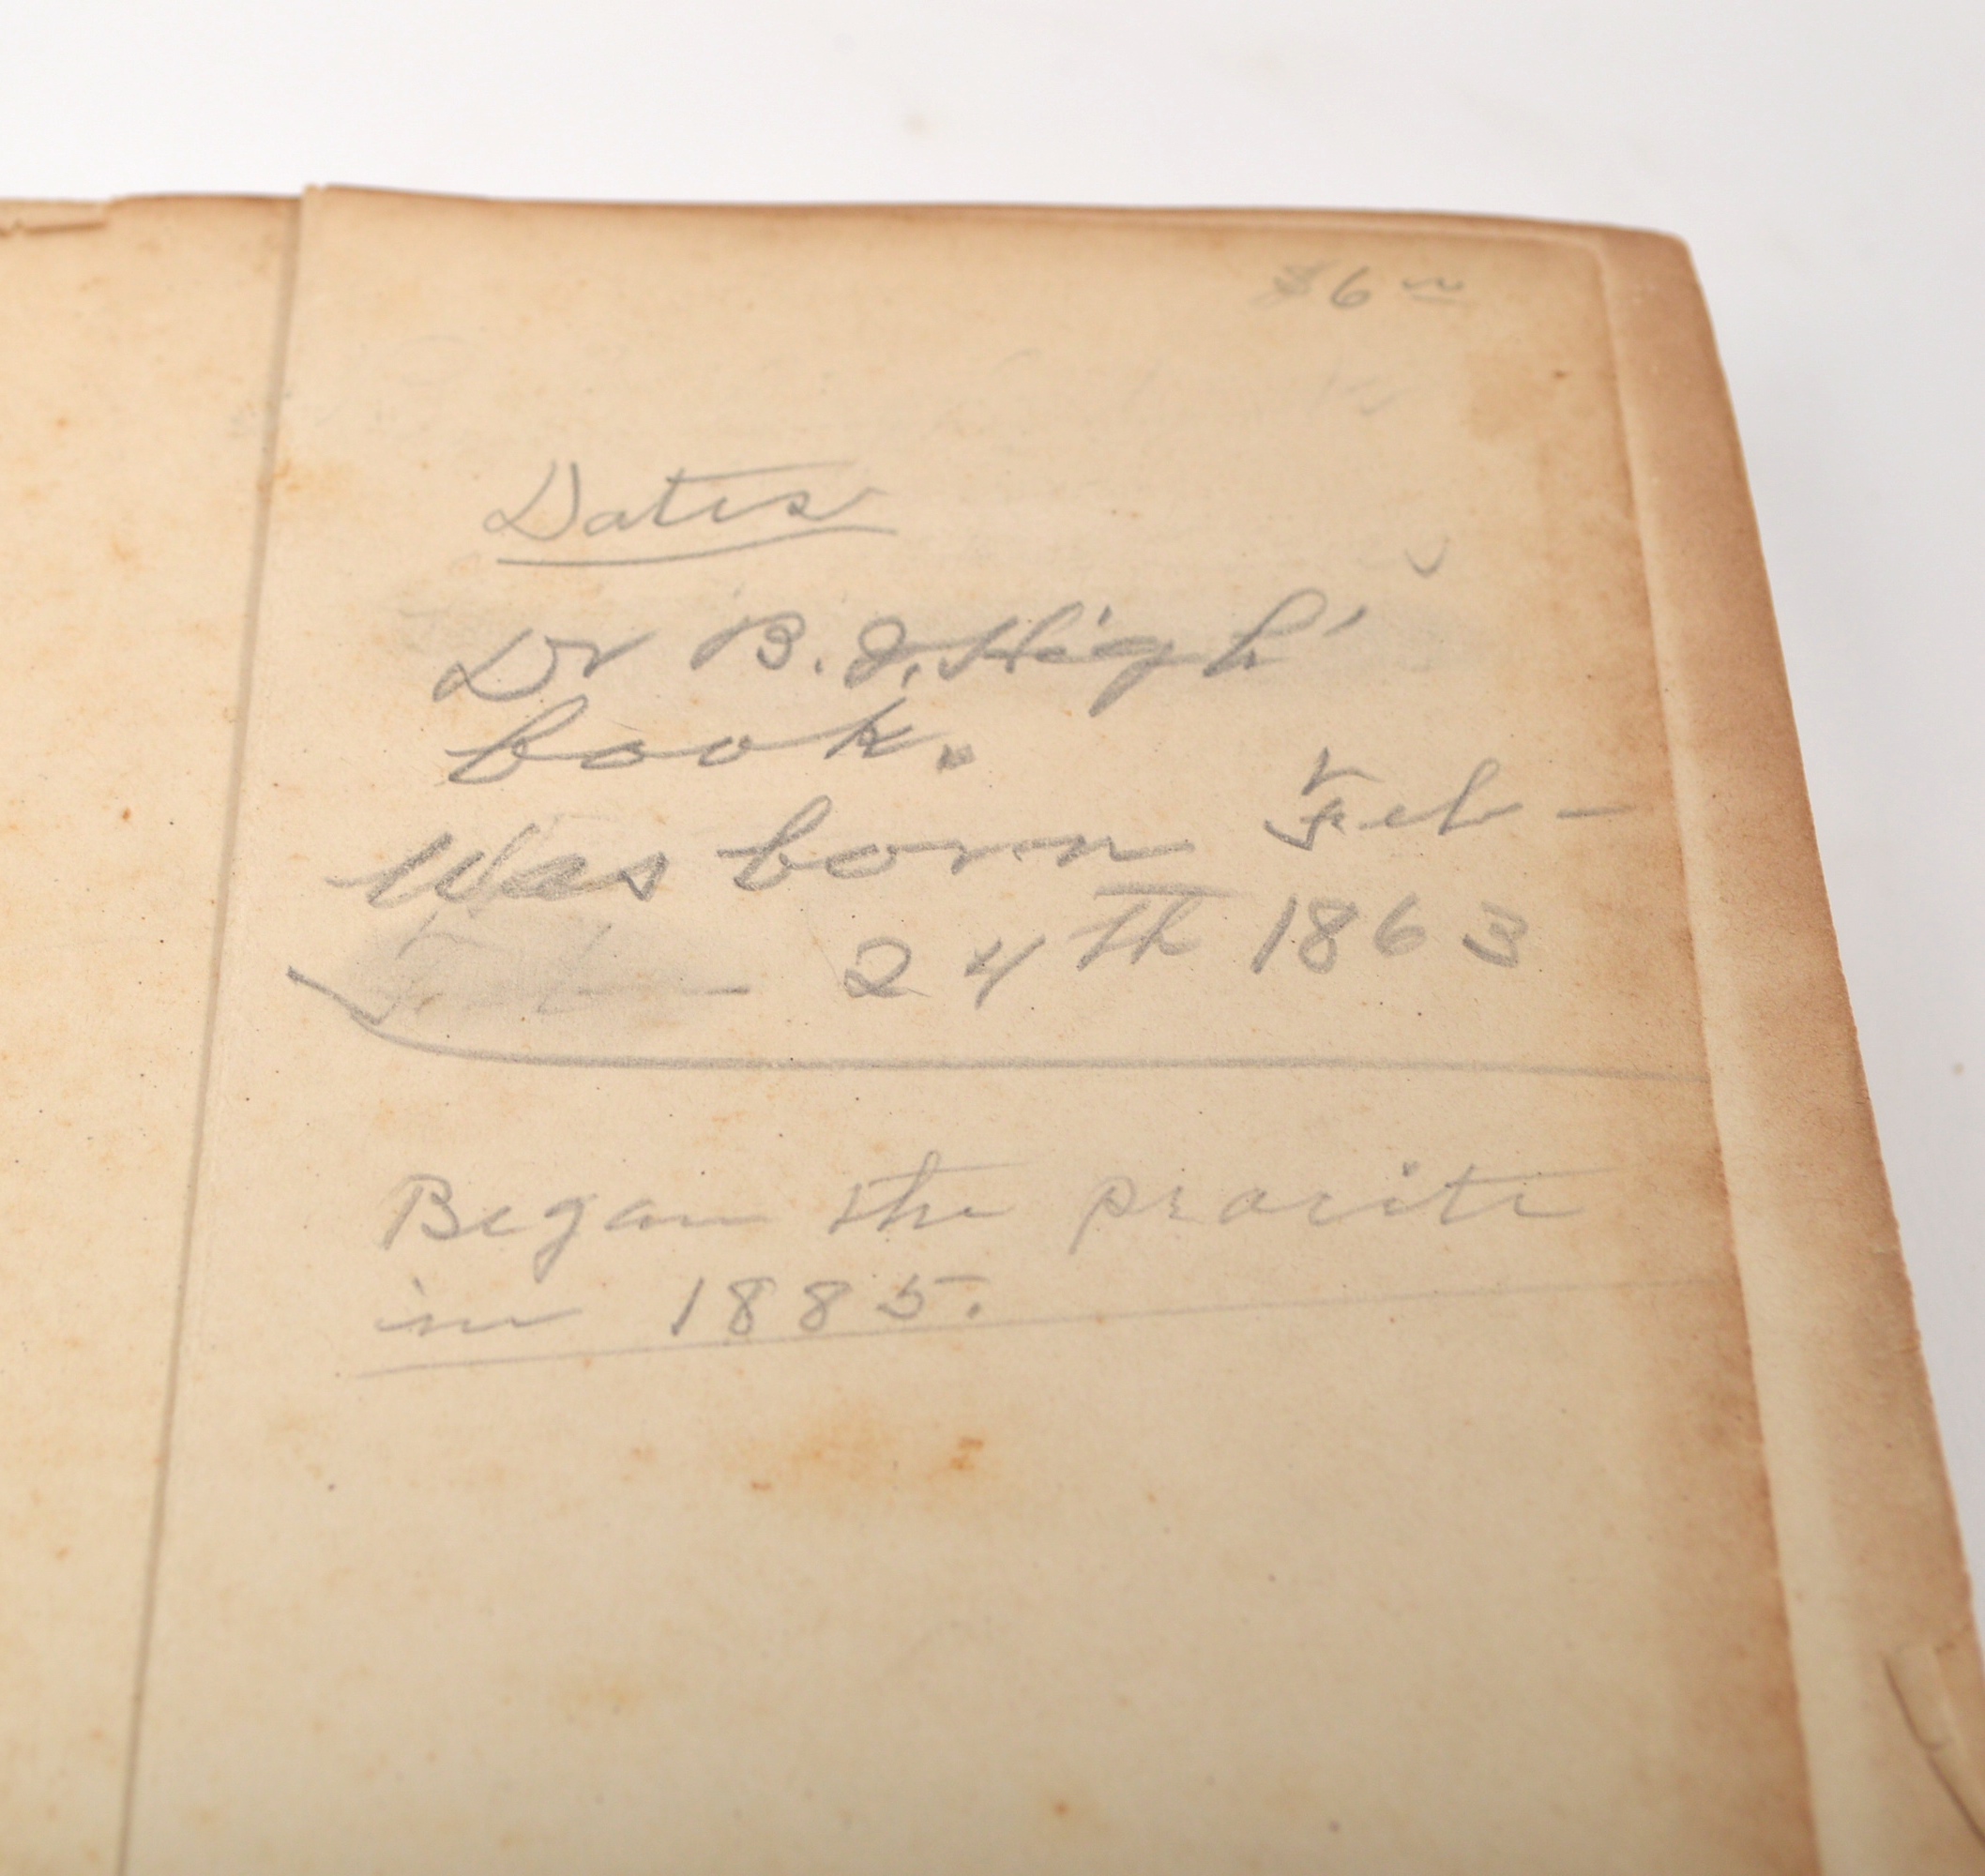 $6
Dates
Dr B. J. High'
book.
Was born Feb -
24th 1863
Began the pracite
in 1885.